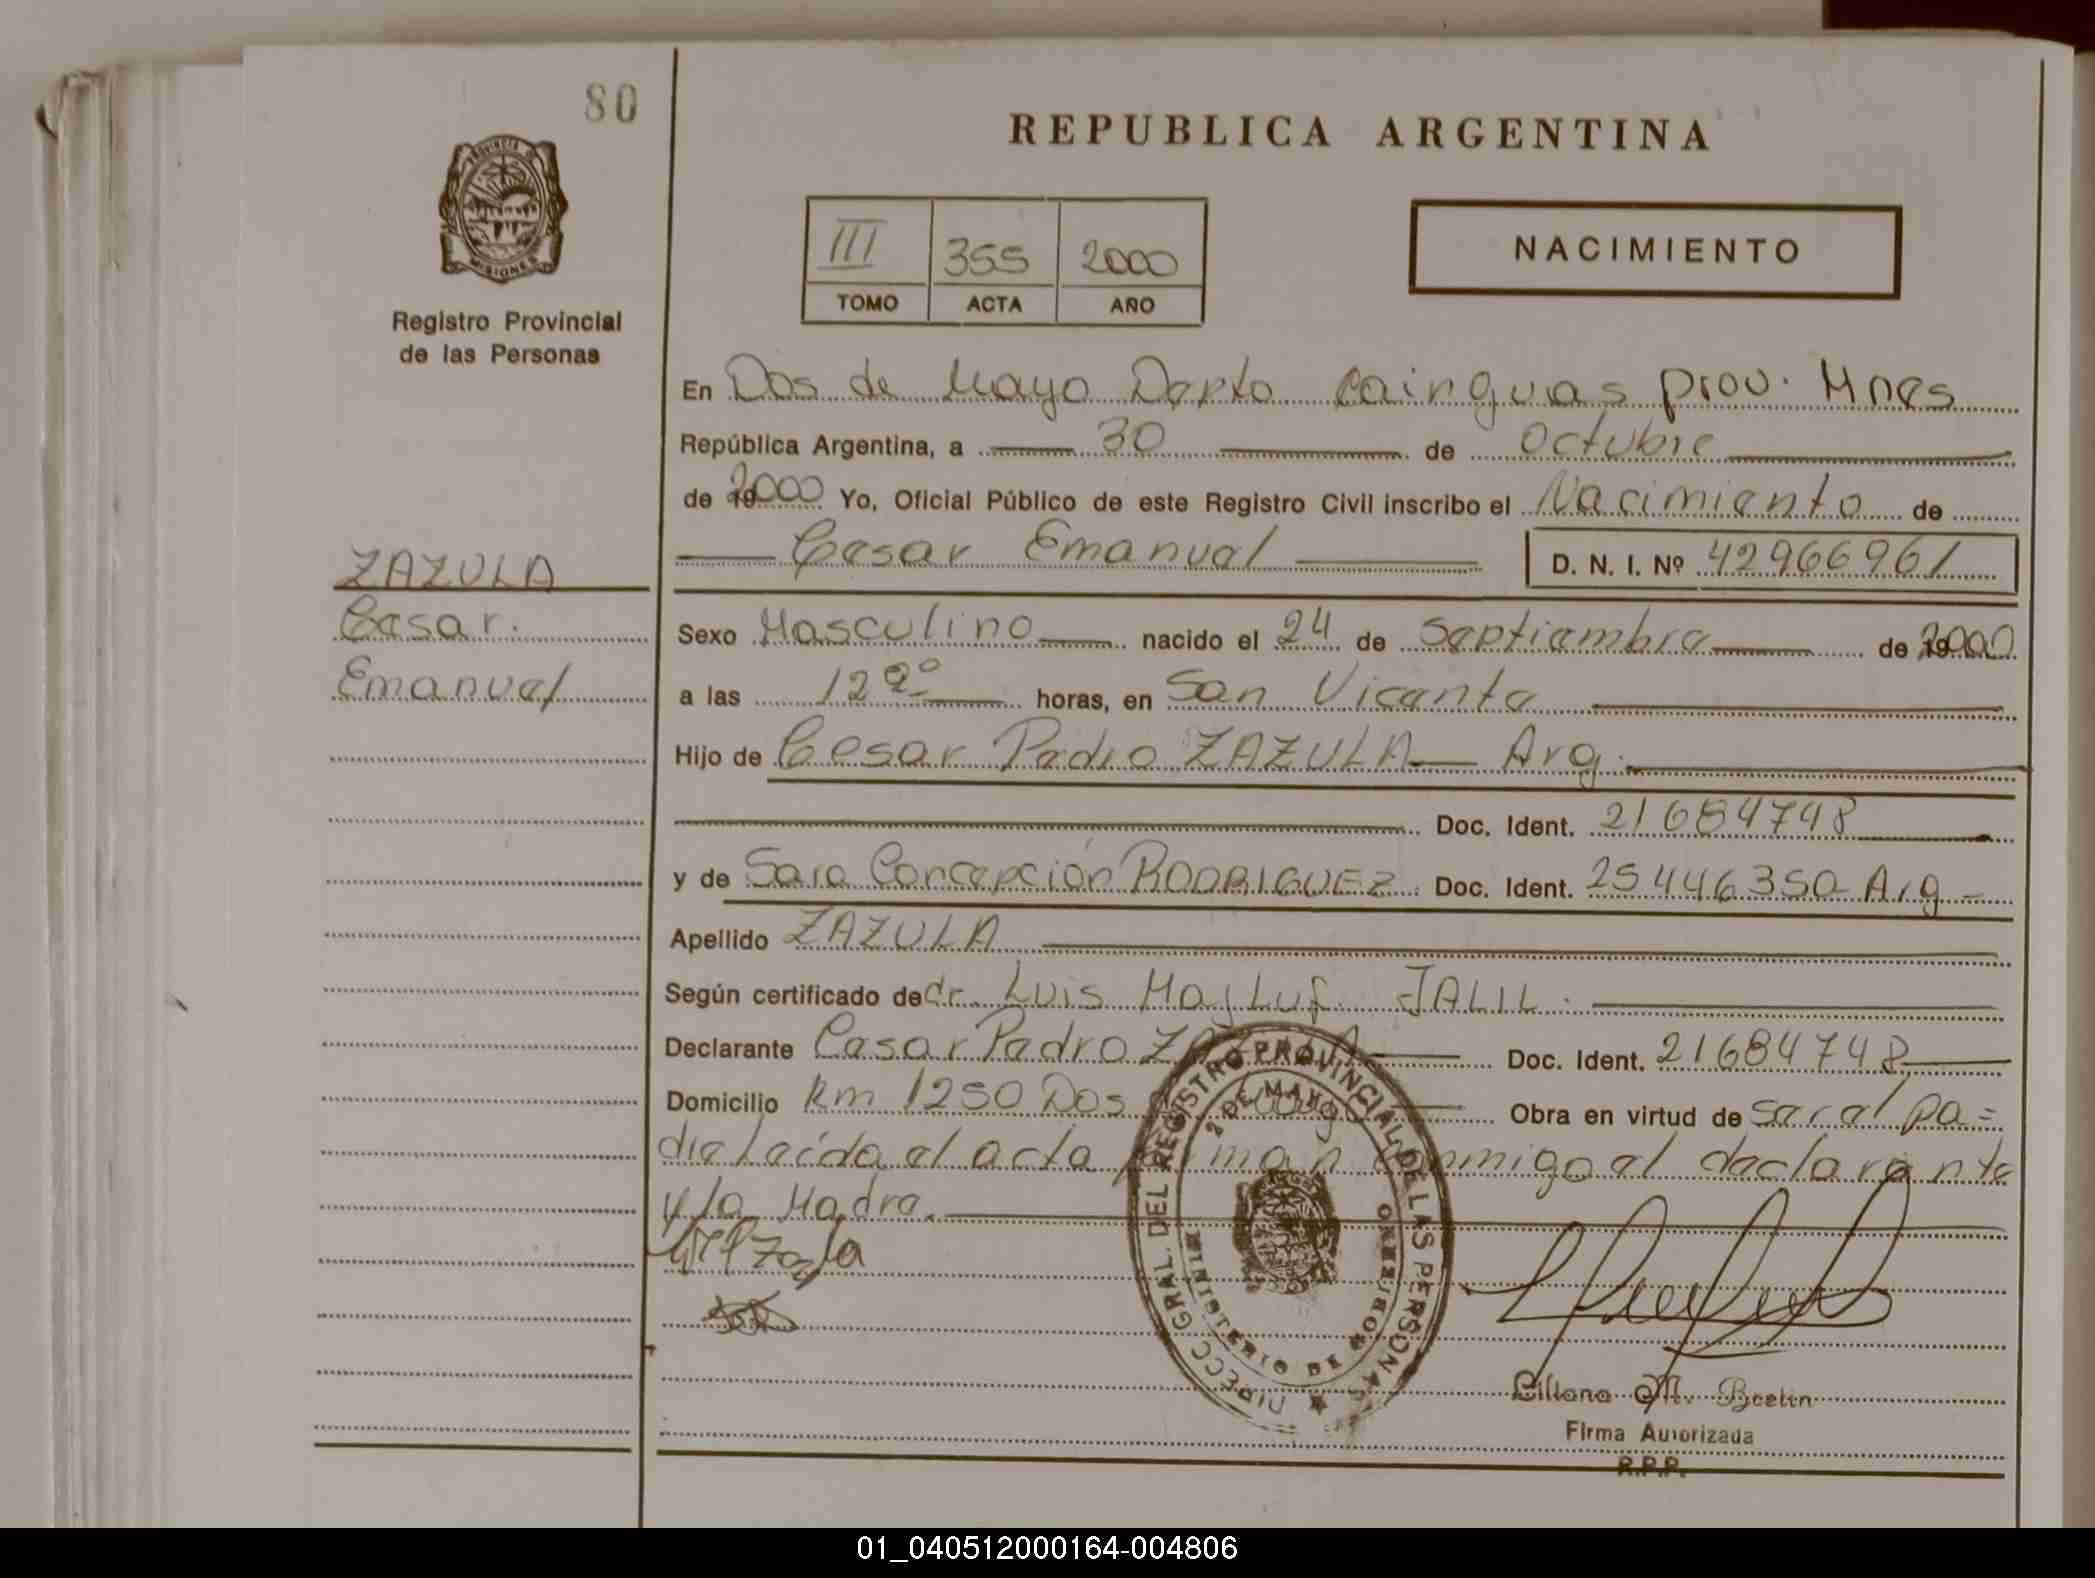 80
REPUBLICA ARGENTINA
PROVINCIA DE
MISIONES
Registro Provincial
de las Personas
III 355 2000
TOMO ACTA AÑO
NACIMIENTO
En Dos de Mayo Depto Cainguas prov. Mnes
República Argentina, a 30 de Octubre
de 2000 Yo, Oficial Público de este Registro Civil inscribo el Nacimiento de
Cesar Emanuel D. N. I. Nº 42966961
ZAZULA
Cesar.
Emanuel
Sexo Masculino nacido el 24 de Septiembre de 2000
a las 12 horas, en San Vicente
Hijo de Cesar Pedro ZAZULA Arg.
Doc. Ident. 21684748
y de Sara Concepción RODRIGUEZ Doc. Ident. 25446350 Arg -
Apellido ZAZULA
Según certificado de dr. Luis Majluf JALIL.
Declarante Cesar Pedro ZAZULA Doc. Ident. 21684748
Domicilio Km 1250 Dos de Mayo Obra en virtud de ser al pa=
dre Leída el acta firman conmigo el declarante
y la Madre.
DIRECC GRAL. DEL REGISTRO PROVINCIAL DE LAS PERSONAS
2 DE MAYO
MINISTERIO DE GOBIERNO
Liliana M.
Firma Autorizada
R.P.P.
01_040512000164-004806